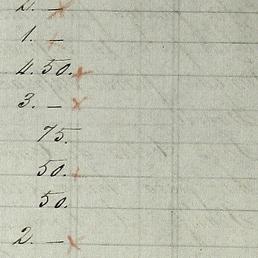 2. —
1. —
4.50.
3. —
75.
50.
50.
2. —